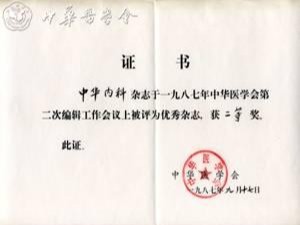 中华医学会
证书
中华内科杂志于一九八七年中华医学会第
二次编辑工作会议上被评为优秀杂志，获二等奖。
此证。
中华医学会
一九八七年九月十七日